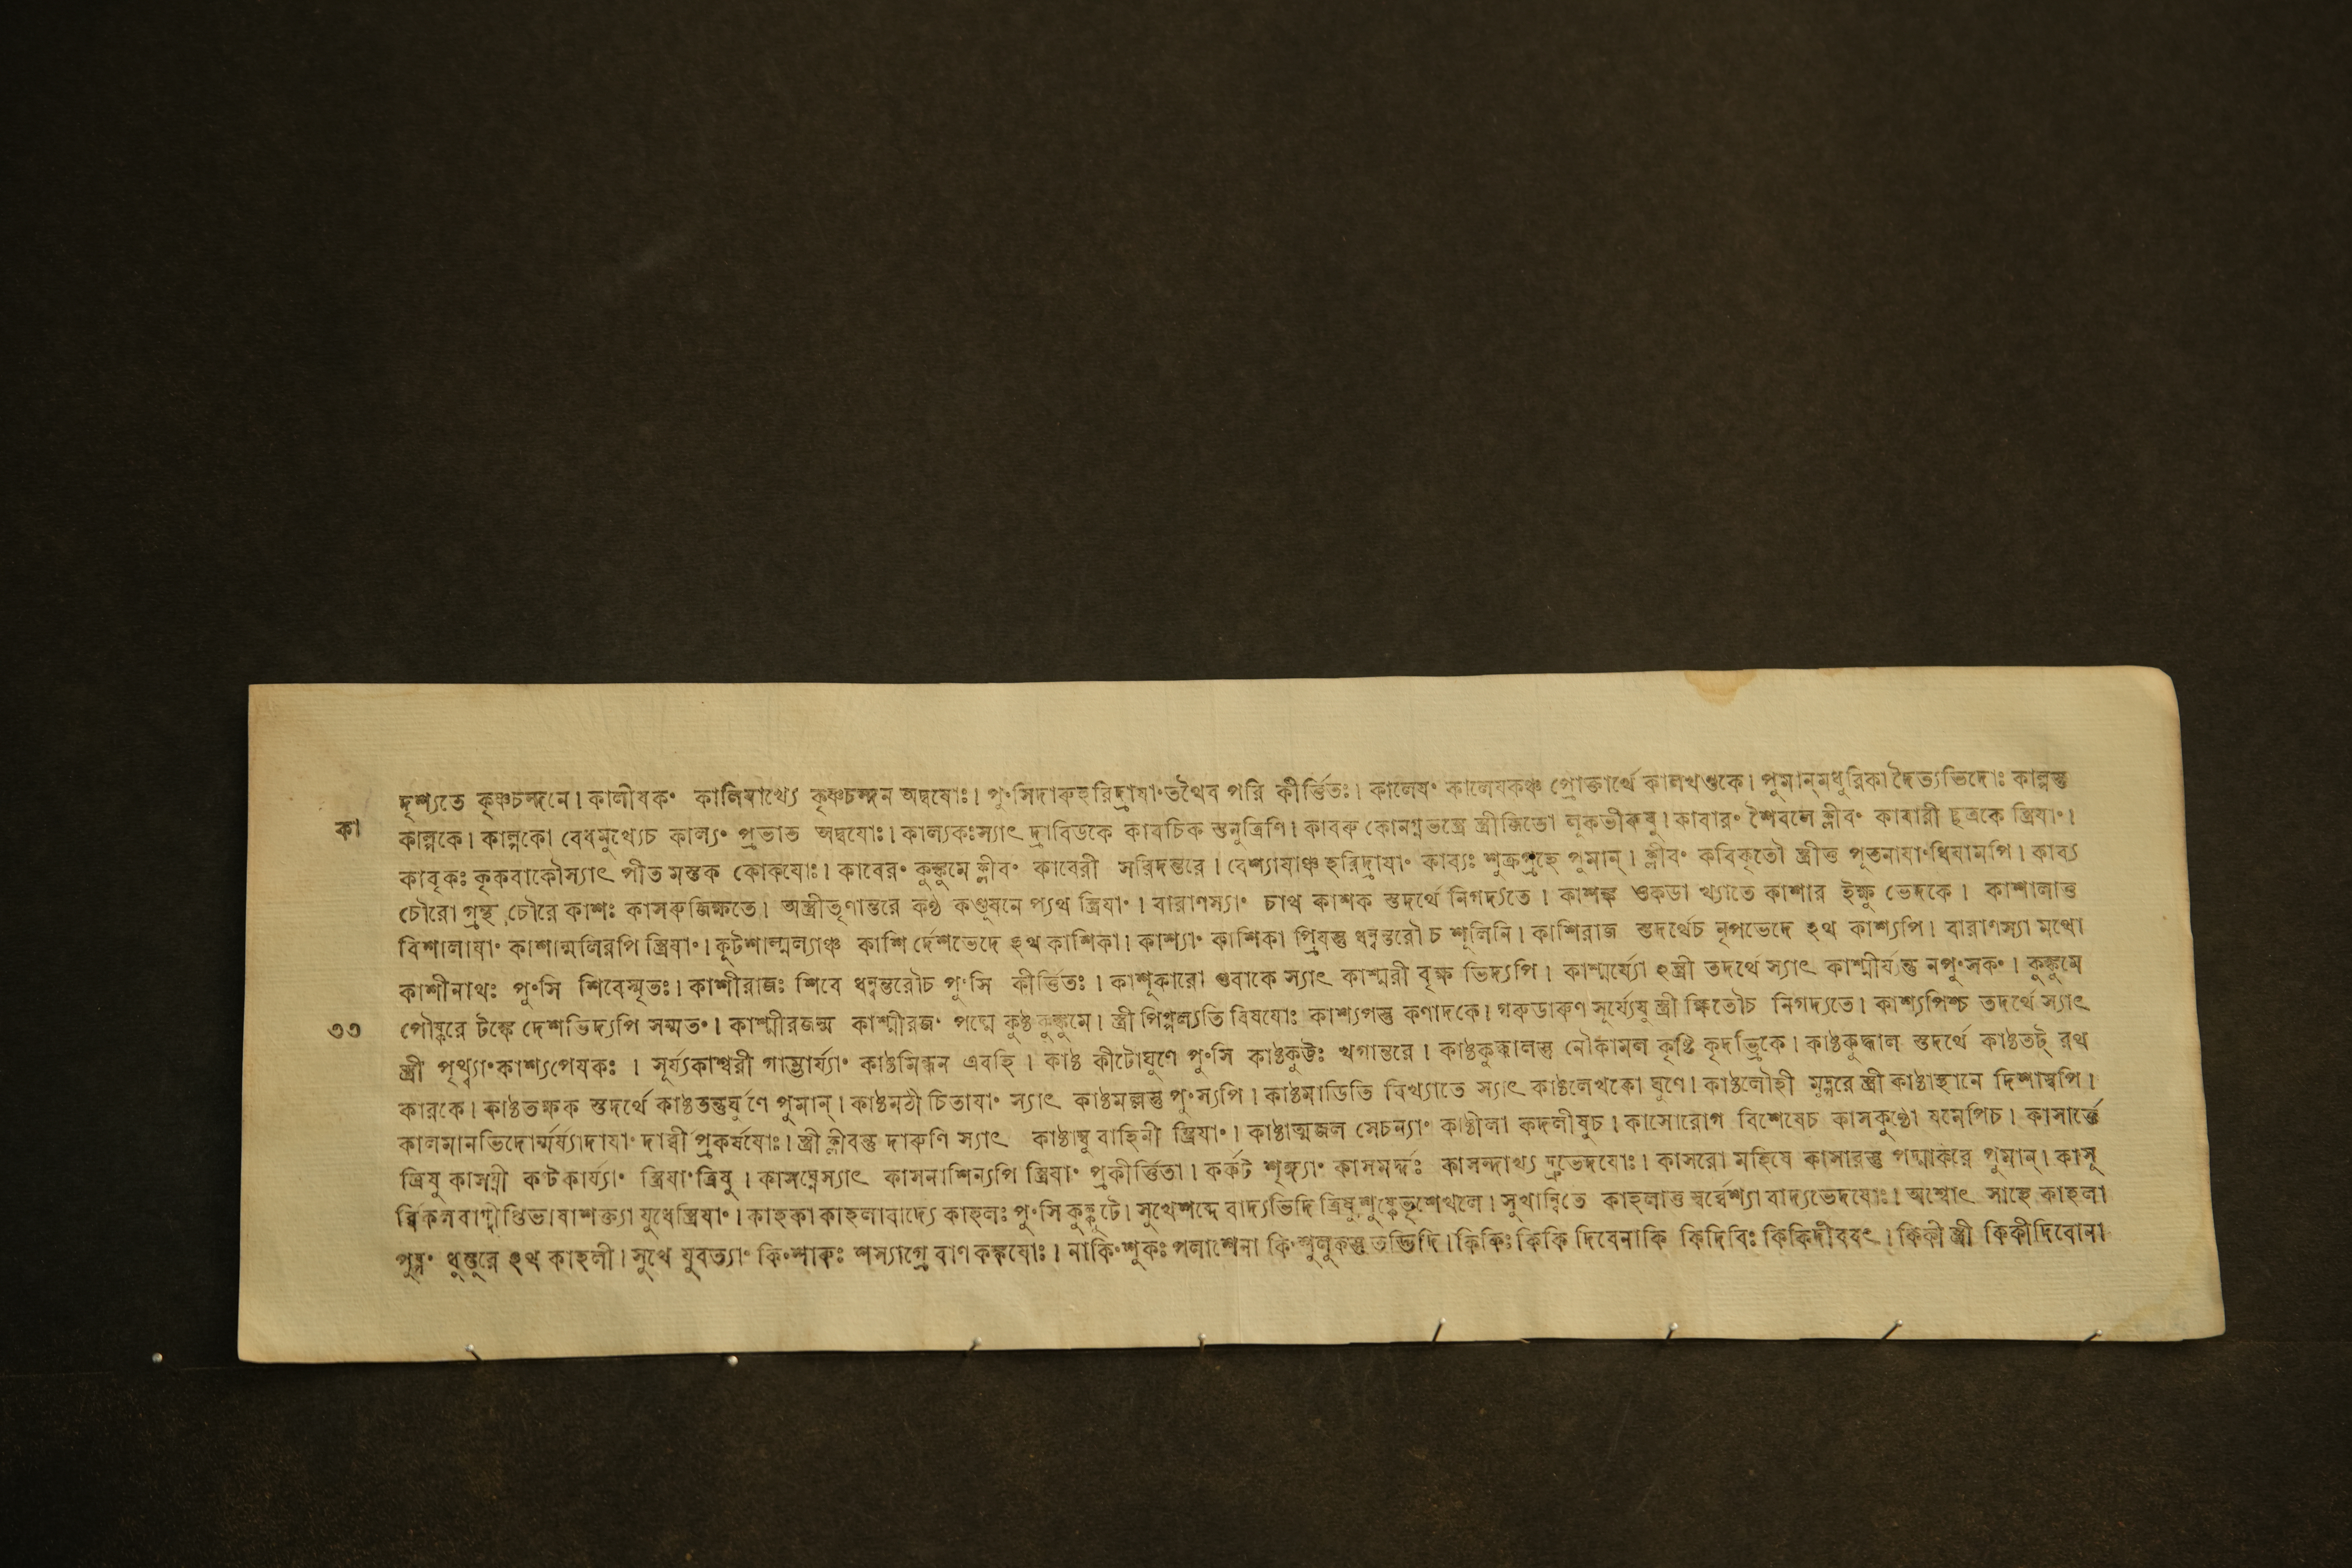 দৃশ্যতে কৃষ্ণচন্দনে। কালীযকং কালিযাখ্যে কৃষ্ণচন্দন অদ্বযোঃ। পুংসিদারুহরিদ্রাযাং তথৈব পরি কীর্ত্তিতঃ। কালেযং কালেযকঞ্চ প্রোক্তার্থে কালখণ্ডকে। পুমান্মধুরিকা দৈত্যভিদোঃ কাল্পস্তু
কা
কাল্পকে। কাল্পকো বেধমুখ্যেচ কাল্যং প্রভাত অদ্বযোঃ। কাল্যকঃস্যাৎ দ্রাবিডকে কাবচিক স্তনুত্রিণি। কাবরু কোনগ্নভন্ত্রে স্ত্রীজিতো লূকভীরুষু। কাবারং শৈবলে ক্লীবং কাবারী ছত্রকে স্ত্রিযাং।
কাবৃকঃ কৃকবাকৌস্যাৎ পীত মস্তক কোকযোঃ। কাবেরং কুঙ্কুমে ক্লীবং কাবেরী সরিদন্তরে। বেশ্যাযাঞ্চ হরিদ্রাযাং কাব্যঃ শুক্রগ্রহে পুমান্। ক্লীবং কবিকৃতৌ স্ত্রীত্ত পূতনাযাংধিযামপি। কাব্য
চৌরো গ্রন্থ চৌরে কাশঃ কাসরুজিক্ষতে। অস্ত্রীতৃণান্তরে কণ্ঠ কণ্ডুযনে প্যথ স্ত্রিযাং। বারাণস্যাং চাথ কাশক স্তদর্থে নিগদ্যতে। কাশঙ্ক ওকডা খ্যাতে কাশার ইক্ষু ভেদকে। কাশালাত্ত
বিশালাযাং কাশাল্মলিরপি স্ত্রিযাং। কূটশাল্মল্যাঞ্চ কাশি র্দেশভেদে হথ কাশিকা। কাশ্যাং কাশিকা প্রিযস্তু ধন্বন্তরৌ চ শূলিনি। কাশিরাজ স্তদর্থেচ নৃপভেদে হথ কাশ্যপি। বারাণস্যা মথো
কাশীনাথঃ পুংসি শিবেস্মৃতঃ। কাশীরাজঃ শিবে ধন্বন্তরৌচ পুংসি কীর্ত্তিতঃ। কাশূকারো গুবাকে স্যাৎ কাশ্মরী বৃক্ষ ভিদ্যপি। কাশ্মর্য্যো হস্ত্রী তদর্থে স্যাৎ কাশ্মীর্য্যন্তু নপুংসকং। কুঙ্কুমে
৩৩
পৌষ্করে টঙ্কে দেশভিদ্যপি সম্মতং। কাশ্মীরজন্ম কাশ্মীরজং পদ্মে কুষ্ঠ কুঙ্কুমে। স্ত্রী পিপ্পল্যতি বিষযোঃ কাশ্যপস্তু কণাদকে। গরুডারুণ সূর্য্যেষু স্ত্রী ক্ষিতৌচ নিগদ্যতে। কাশ্যপিশ্চ তদর্থে স্যাৎ
স্ত্রী পৃথ্ব্যাং কাশ্যপেযকঃ। সূর্য্যকাশ্বরী গাম্ভার্য্যাং কাষ্ঠমিন্ধন এবহি। কাষ্ঠ কীটোঘুণে পুংসি কাষ্ঠকুট্টঃ খগান্তরে। কাষ্ঠকুদ্দালস্তু নৌকামল কৃষ্টি কৃদভ্রিকে। কাষ্ঠকুদ্দাল স্তদর্থে কাষ্ঠতট্ রথ
কারকে। কাষ্ঠতক্ষক স্তদর্থে কাষ্ঠতন্তুর্ঘু ণে পুমান্। কাষ্ঠমঠী চিতাযাং স্যাৎ কাষ্ঠমল্লস্তু পুংস্যপি। কাষ্ঠমাডিতি বিখ্যাতে স্যাৎ কাষ্ঠলেখকো ঘুণে। কাষ্ঠলৌহী মুদ্গরে স্ত্রী কাষ্ঠাহানে দিশাস্বপি।
কালমানভিদোর্ম্মর্য্যাদাযাং দার্ব্বী প্রকর্ষযোঃ। স্ত্রী ক্লীবন্তু দারুণি স্যাৎ কাষ্ঠাম্বু বাহিনী স্ত্রিযাং। কাষ্ঠাত্মজল সেচন্যাং কাষ্ঠীলা কদলীষুচ। কাসোরোগ বিশেষেচ কাসকুণ্ঠো যমেপিচ। কাসার্ত্তে
ত্রিষু কাসঘ্নী কণ্টকার্য্যাং স্ত্রিযাংত্রিষু। কাসঘ্নেস্যাৎ কাসনাশিন্যপি স্ত্রিযাং প্রকীর্ত্তিতা। কর্কট শৃঙ্গ্যাং কাসমর্দ্দঃ কাসন্দাখ্য দ্রুভেদযোঃ। কাসরো মহিষে কাসারস্তু পদ্মাকরে পুমান্। কাসূ
র্ব্বিকলবাগ্দীপ্তিভাষাশক্ত্যা যুধেস্ত্রিযাং। কাহকা কাহলাবাদ্যে কাহলঃ পুংসি কুক্কুটে। সুখেশব্দে বাদ্যভিদি ত্রিষুশুষ্কেভৃশেখলে। সুখান্বিতে কাহলাত্ত স্বর্ব্বেশ্যা বাদ্যভেদযোঃ। অশ্বোৎ সাহে কাহলা
পুষ্পং ধুস্তুরে হথ কাহলী। সুখে যুবত্যাং কিংশারুঃ শস্যাগ্রে বাণ কঙ্কযোঃ। নাকিংশুকঃ পলাশেনা কিংশুলুকস্তু তদ্ভিদি। কিকিঃ কিকি দিবেনাকি কিদিবিঃ কিকিদীববৎ। কিকী স্ত্রী কিকীদিবোনা